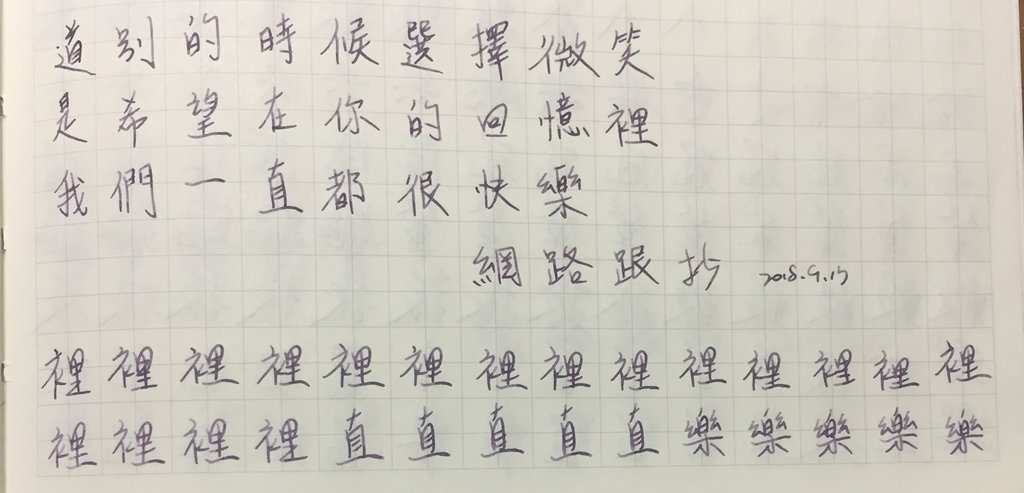 道別的時候選擇微笑
是希望在你的回憶裡
我們一直都很快樂
網路跟抄 2018.9.17
裡裡裡裡裡裡裡裡裡裡裡裡裡裡
裡裡裡裡直直直直直樂樂樂樂樂